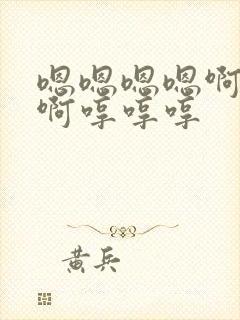 嗯嗯嗯嗯啊
啊哼哼哼
黄兵